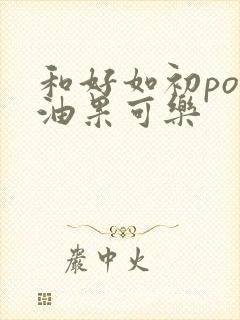 和好如初po
油果可樂
嚴中火